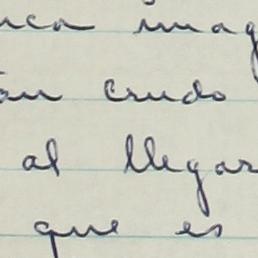 nca imag
an crudo
al llegar
que es